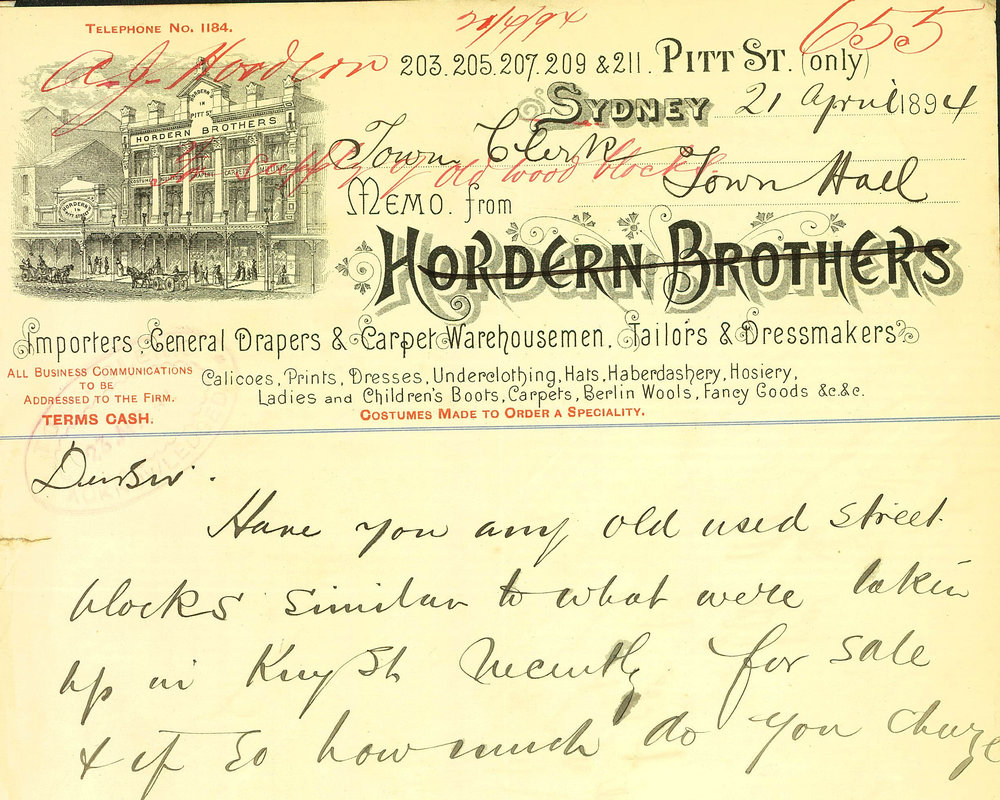 TELEPHONE NO. 1184.
21/4/94
655
A. J. Hordern
203. 205. 207. 209 & 211. PITT ST. (only)
SYDNEY 21 April 1894
HORDERN BROTHERS
Town Clerk
Town Hall
supply of old wood blocks.
MEMO. from
HORDERN BROTHERS
Importers, General Drapers & Carpet Warehousemen, Tailors & Dressmakers.
ALL BUSINESS COMMUNICATIONS
TO BE
ADDRESSED TO THE FIRM.
TERMS CASH.
Calicoes, Prints, Dresses, Underclothing, Hats, Haberdashery, Hosiery,
Ladies and Children's Boots, Carpets, Berlin Wools, Fancy Goods &c.&c.
COSTUMES MADE TO ORDER A SPECIALITY.
Dear Sir.
Have you any old used street
blocks similar to what were taken
up in King St recently for sale
& if so how much do you charge